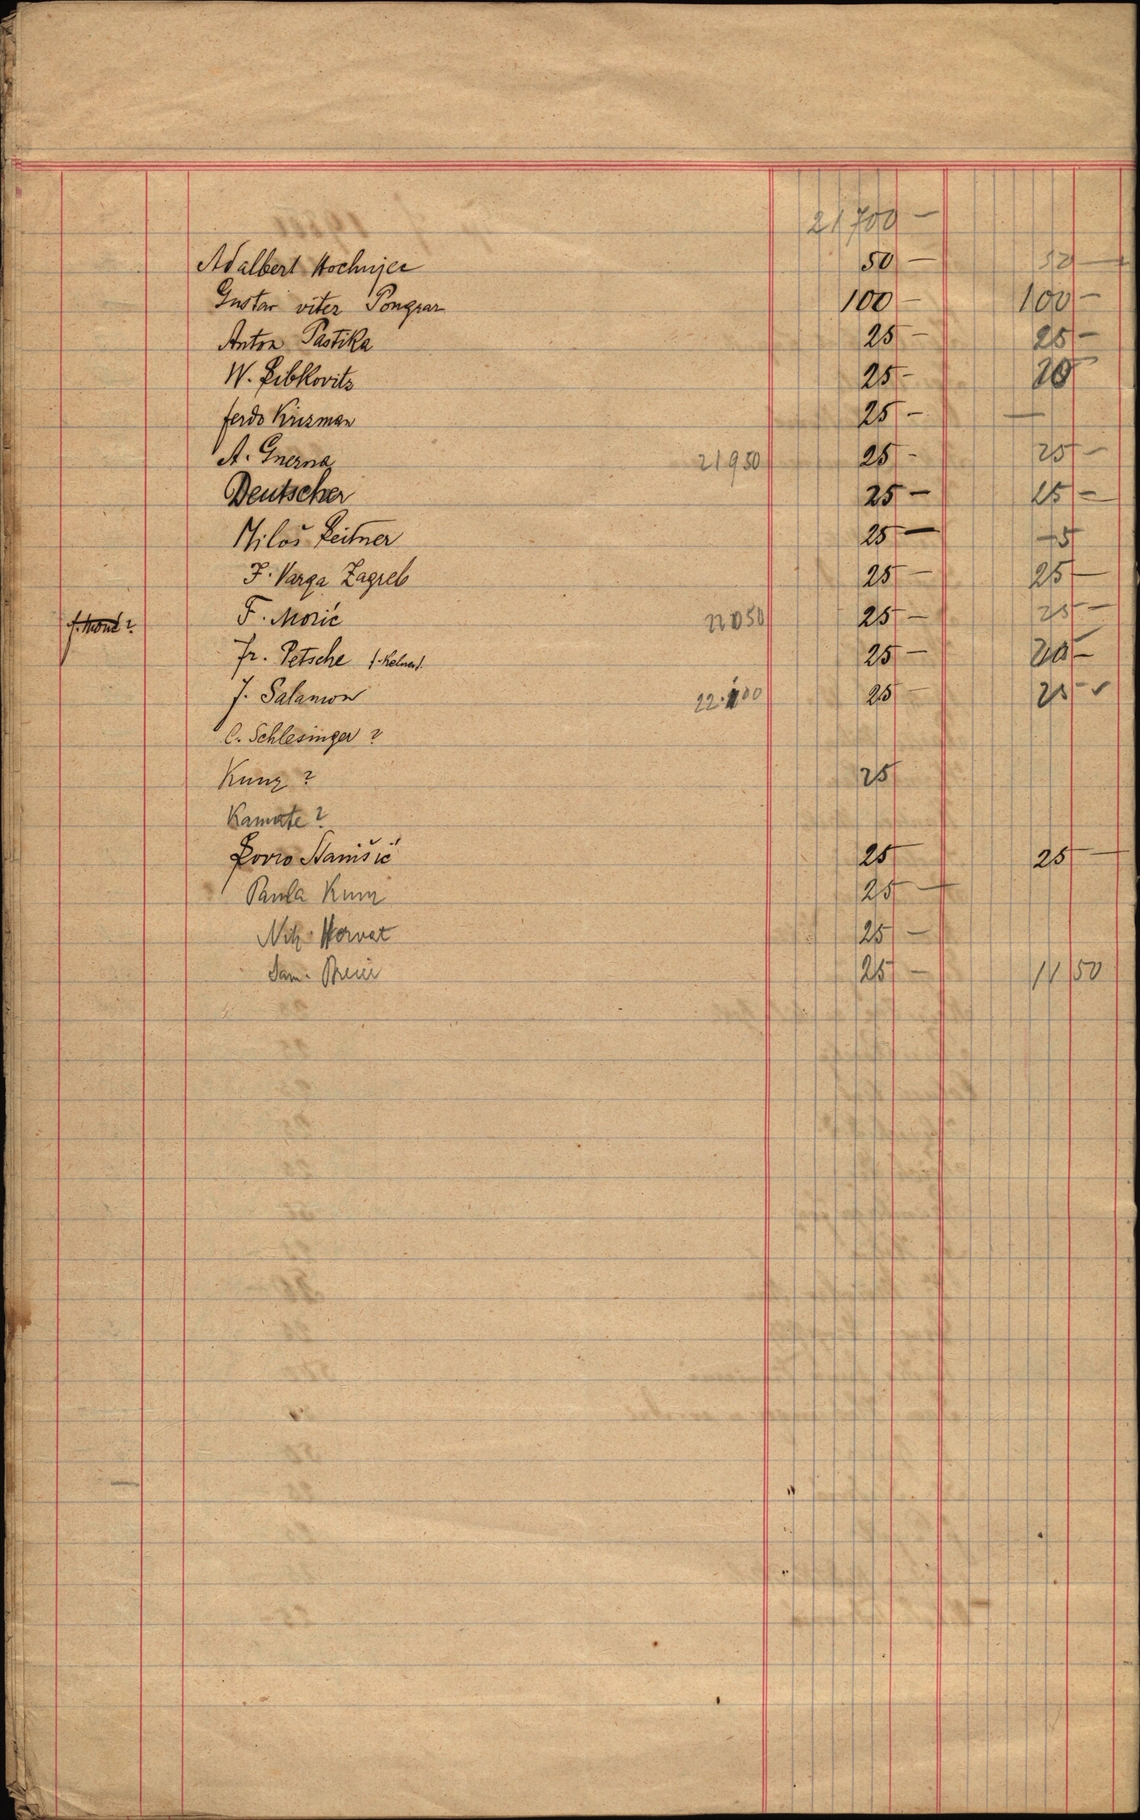 21700 —
Adalbert Hochnjec 50 — 50 —
Gustav vitez Pongraz 100 — 100 —
Anton Pastika 25 — 25 —
W. Libkovits 25 - 20
ferdo Krizman 25 - —
A. Gnezna 21950 25 - 25 —
Deutscher 25 — 25 —
Miloš Leitner 25 — 5
F. Varga Zagreb 25 — 25 —
F. Morić 22050 25 — 25 —
Fr. Petsche 25 — 20 —
J. Salamon 22.100 25 — 25 —
C. Schlesinger ?
Kunz ? 25
Kamate ?
Lovro Stanišić 25 25 —
Paula Kunz 25 —
Horvat 25 —
Sam. 25 — 11 50